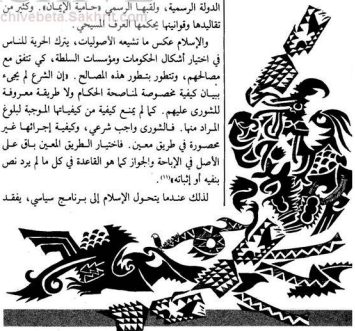 الدولة الرسمية، ولقبها الرسمي «حامية الإيمان». وكثير من
chivebeta.Sakhrit.com
تقاليدها وقوانينها يحكمها العرف المسيحي.
والإسلام عكس ما تشيعه الأصوليات، يترك الحرية للناس
في اختيار أشكال الحكومات ومؤسسات السلطة، كي تتفق مع
مصالحهم، وتتطور بتطور هذه المصالح. «إن الشرع لم يجىء
ببيان كيفية مخصوصة لمناصحة الحكام ولا طريقة معروفة
للشورى عليهم. كما لم يمنع كيفية من كيفياتها الموجبة لبلوغ
المراد منها. فالشورى واجب شرعي، وكيفية إجرائها غير
محصورة في طريق معين. فاختيار الطريق المعين باق على
الأصل في الإباحة والجواز كما هو القاعدة في كل ما لم يرد نص
بنفيه أو إثباته»(١١).
لذلك عندما يتحول الإسلام إلى برنامج سياسي، يفقد